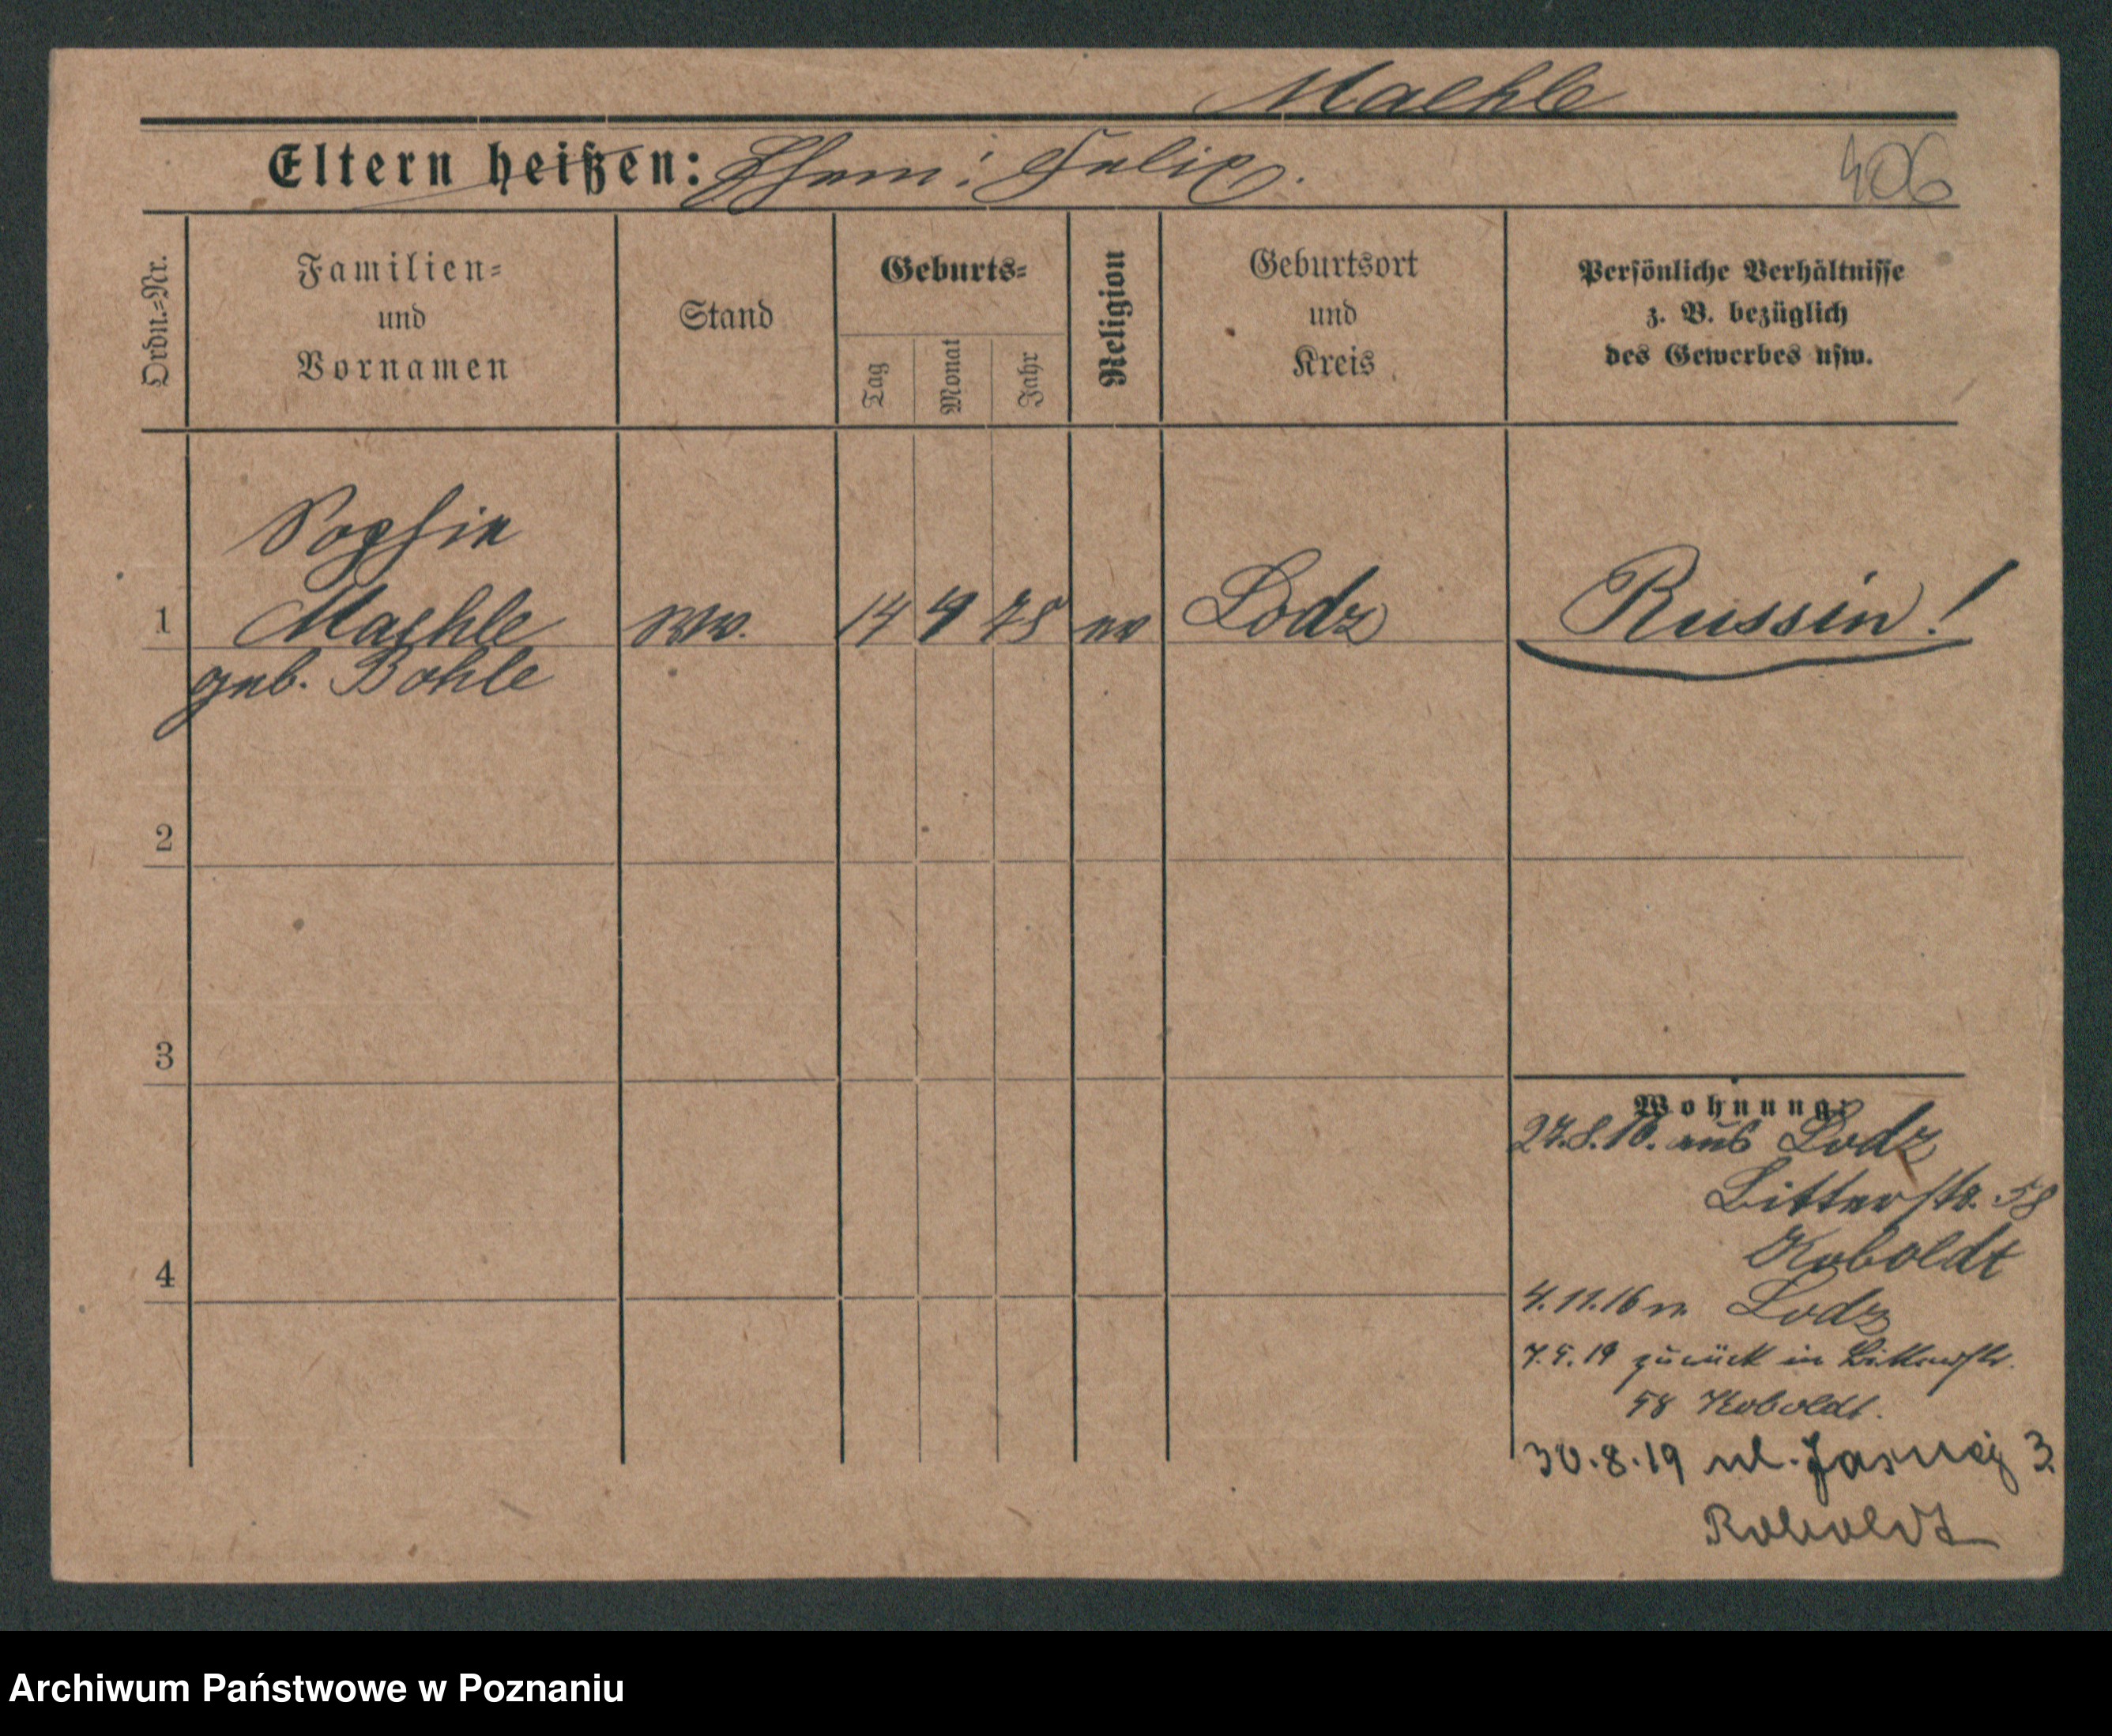 Maehle
Eltern heißen: Ehem: Felix.
406
Ordn.=Nr.
Familien=
und
Vornamen
Stand
Geburts=
Tag
Monat
Jahr
Religion
Geburtsort
und
Kreis
Persönliche Verhältnisse
z. B. bezüglich
des Gewerbes usw.
Sophie
1 Maehle Ww. 14 4 78 ev Lodz Russin!
geb. Bohle
2
3
4
Wohnung:
27.8.16. aus Lodz
Bitterstr. 58
Koboldt
4.11.16 n. Lodz
7.5.19 zurück in Bitterstr.
58 Koboldt.
30.8.19 ul. Jasnej 3.
Roboldt
Archiwum Państwowe w Poznaniu